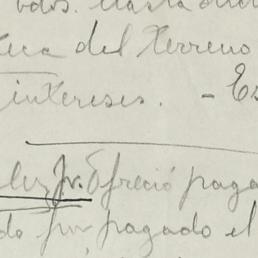 bdos. Hasta
del terreno
intereses. - Es
lez Jr. Ofreció paga
do por pagado el